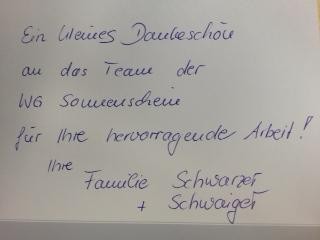 Ein kleines Dankeschön
an das Team der
WG Sonnenschein
für Ihre hervorragende Arbeit!
Ihre
Familie Schwarzer
+ Schwaiger